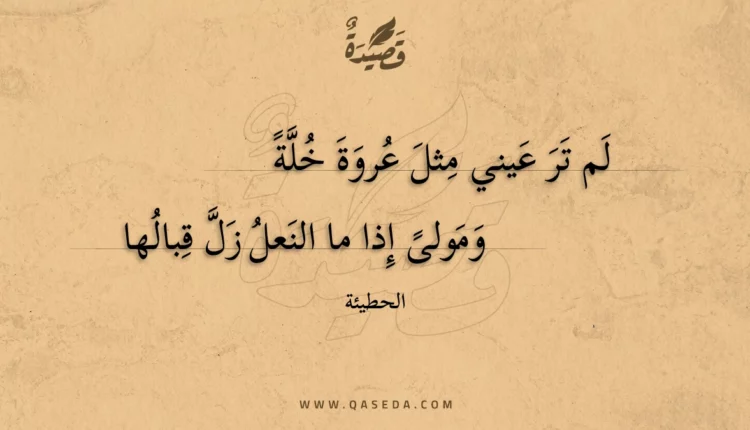 قَصِيدَةٌ
لَم تَرَ عَيني مِثلَ عُروَةَ خُلَّةً
وَمَولىً إِذا ما النَعلُ زَلَّ قِبالُها
الحطيئة
WWW.QASEDA.COM